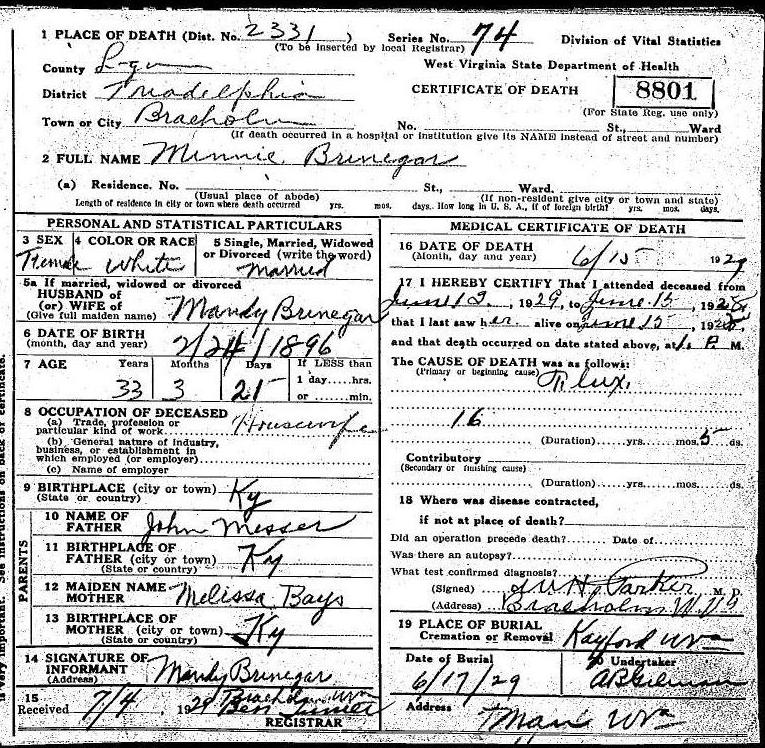 1 PLACE OF DEATH (Dist. No. 2331 ) Series No. 74 Division of Vital Statistics
(To be inserted by local Registrar)
County West Virginia State Department of Health
District Triadelphia CERTIFICATE OF DEATH 8801
(For State Reg. use only)
Town or City Braeholm No. St., Ward
(If death occurred in a hospital or institution give its NAME instead of street and number)
2 FULL NAME Minnie Brinegar
(a) Residence. No. St., Ward.
(Usual place of abode) (If non-resident give city or town and state)
Length of residence in city or town where death occurred yrs. mos. days. How long in U. S. A., if of foreign birth? yrs. mos. days.
PERSONAL AND STATISTICAL PARTICULARS
3 SEX 4 COLOR OR RACE 5 Single, Married, Widowed
or Divorced (write the word)
Female White Married
5a If married, widowed or divorced
HUSBAND of
(or) WIFE of Mandy Brinegar
(Give full maiden name)
6 DATE OF BIRTH
(month, day and year) 2/24/1896
7 AGE Years Months Days If LESS than
1 day.....hrs.
33 3 21 or .....min.
8 OCCUPATION OF DECEASED
(a) Trade, profession or
particular kind of work Housewife
(b) General nature of industry,
business, or establishment in
which employed (or employer)
(c) Name of employer
9 BIRTHPLACE (city or town) Ky
(State or country)
PARENTS
10 NAME OF
FATHER John Messer
11 BIRTHPLACE OF
FATHER (city or town) Ky
(State or country)
12 MAIDEN NAME
MOTHER Melissa Bays
13 BIRTHPLACE OF
MOTHER (city or town) Ky
(State or country)
14 SIGNATURE OF
INFORMANT Mandy Brinegar
(Address) Braeholm W Va
15
Received 7/4 , 1929 Ben
REGISTRAR
MEDICAL CERTIFICATE OF DEATH
16 DATE OF DEATH
(Month, day and year) 6/15 1929
17 I HEREBY CERTIFY That I attended deceased from
June 13, 1929, to June 15, 192
that I last saw her alive on June 15, 192
and that death occurred on date stated above, at P M.
The CAUSE OF DEATH was as follows:
(Primary or beginning cause) Flux
16
(Duration) yrs. mos. 5 ds.
Contributory
(Secondary or finishing cause)
(Duration) yrs. mos. ds.
18 Where was disease contracted,
if not at place of death?
Did an operation precede death? Date of
Was there an autopsy?
What test confirmed diagnosis?
(Signed) Parker M. D.
(Address) Braeholm W Va
19 PLACE OF BURIAL
Cremation or Removal Kayford W Va
Date of Burial 20 Undertaker
6/17/29
Address
Man W Va
is very important. See instructions on back of certificate.